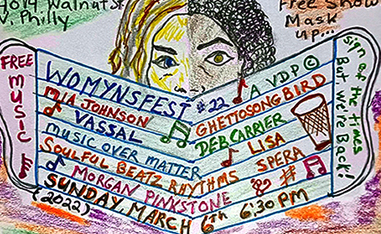 4014 Walnut St.
W. Philly
Free Show
Mask
up...
FREE
MUSIC
WOMYNSFEST #22
MIA JOHNSON
VASSAL
MUSIC OVER MATTER
SOULFUL BEATZ RHYTHMS
MORGAN PINKSTONE
SUNDAY, MARCH 6th 6:30 PM
(2022)
A VDP ©
GHETTOSONGBIRD
DEB CARRIER
LISA
SPERA
Sign of the times
But we're Back!